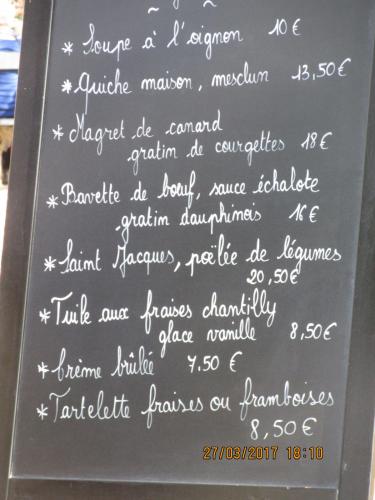 * Soupe à l'oignon 10 €
* Quiche maison, mesclun 13,50 €
* Magret de canard
gratin de courgettes 18 €
* Bavette de bœuf, sauce échalote
gratin dauphinois 16 €
* Saint Jacques, poëlée de légumes
20,50 €
* Tuile aux fraises chantilly
glace vanille 8,50 €
* Crème brûlée 7.50 €
* Tartelette fraises ou framboises
8,50 €
27/03/2017 18:10